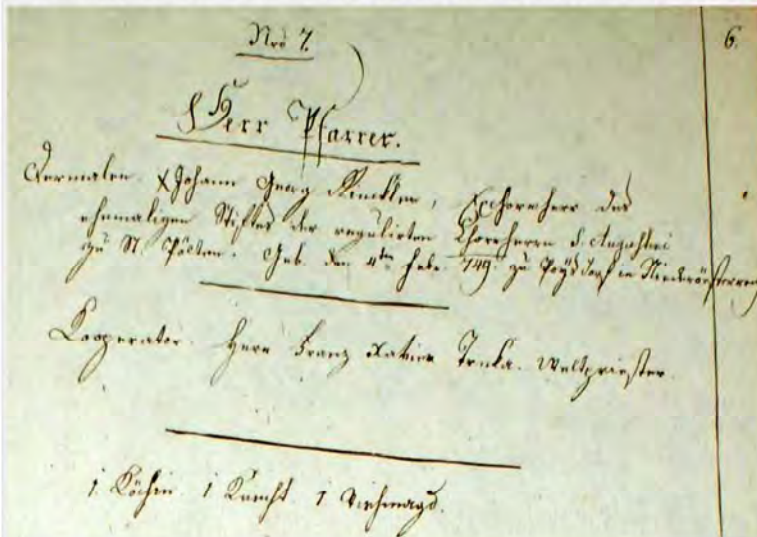 Nro 7.
6.
Herr Pfarrer.
Dermalen. X Johann Georg Rinckler, Exchorrherr des
ehemaligen Stiftes der regulirten Chorrherrn S. Augustini
zu St. Pölten. Geb. den 4ten Febr. 749. zu Poysdorf in Niederösterreich
Cooperator. Herr Franz Xavier Trnka. Weltpriester.
1. Köchin. 1 Knecht. 1. Viehmagd.